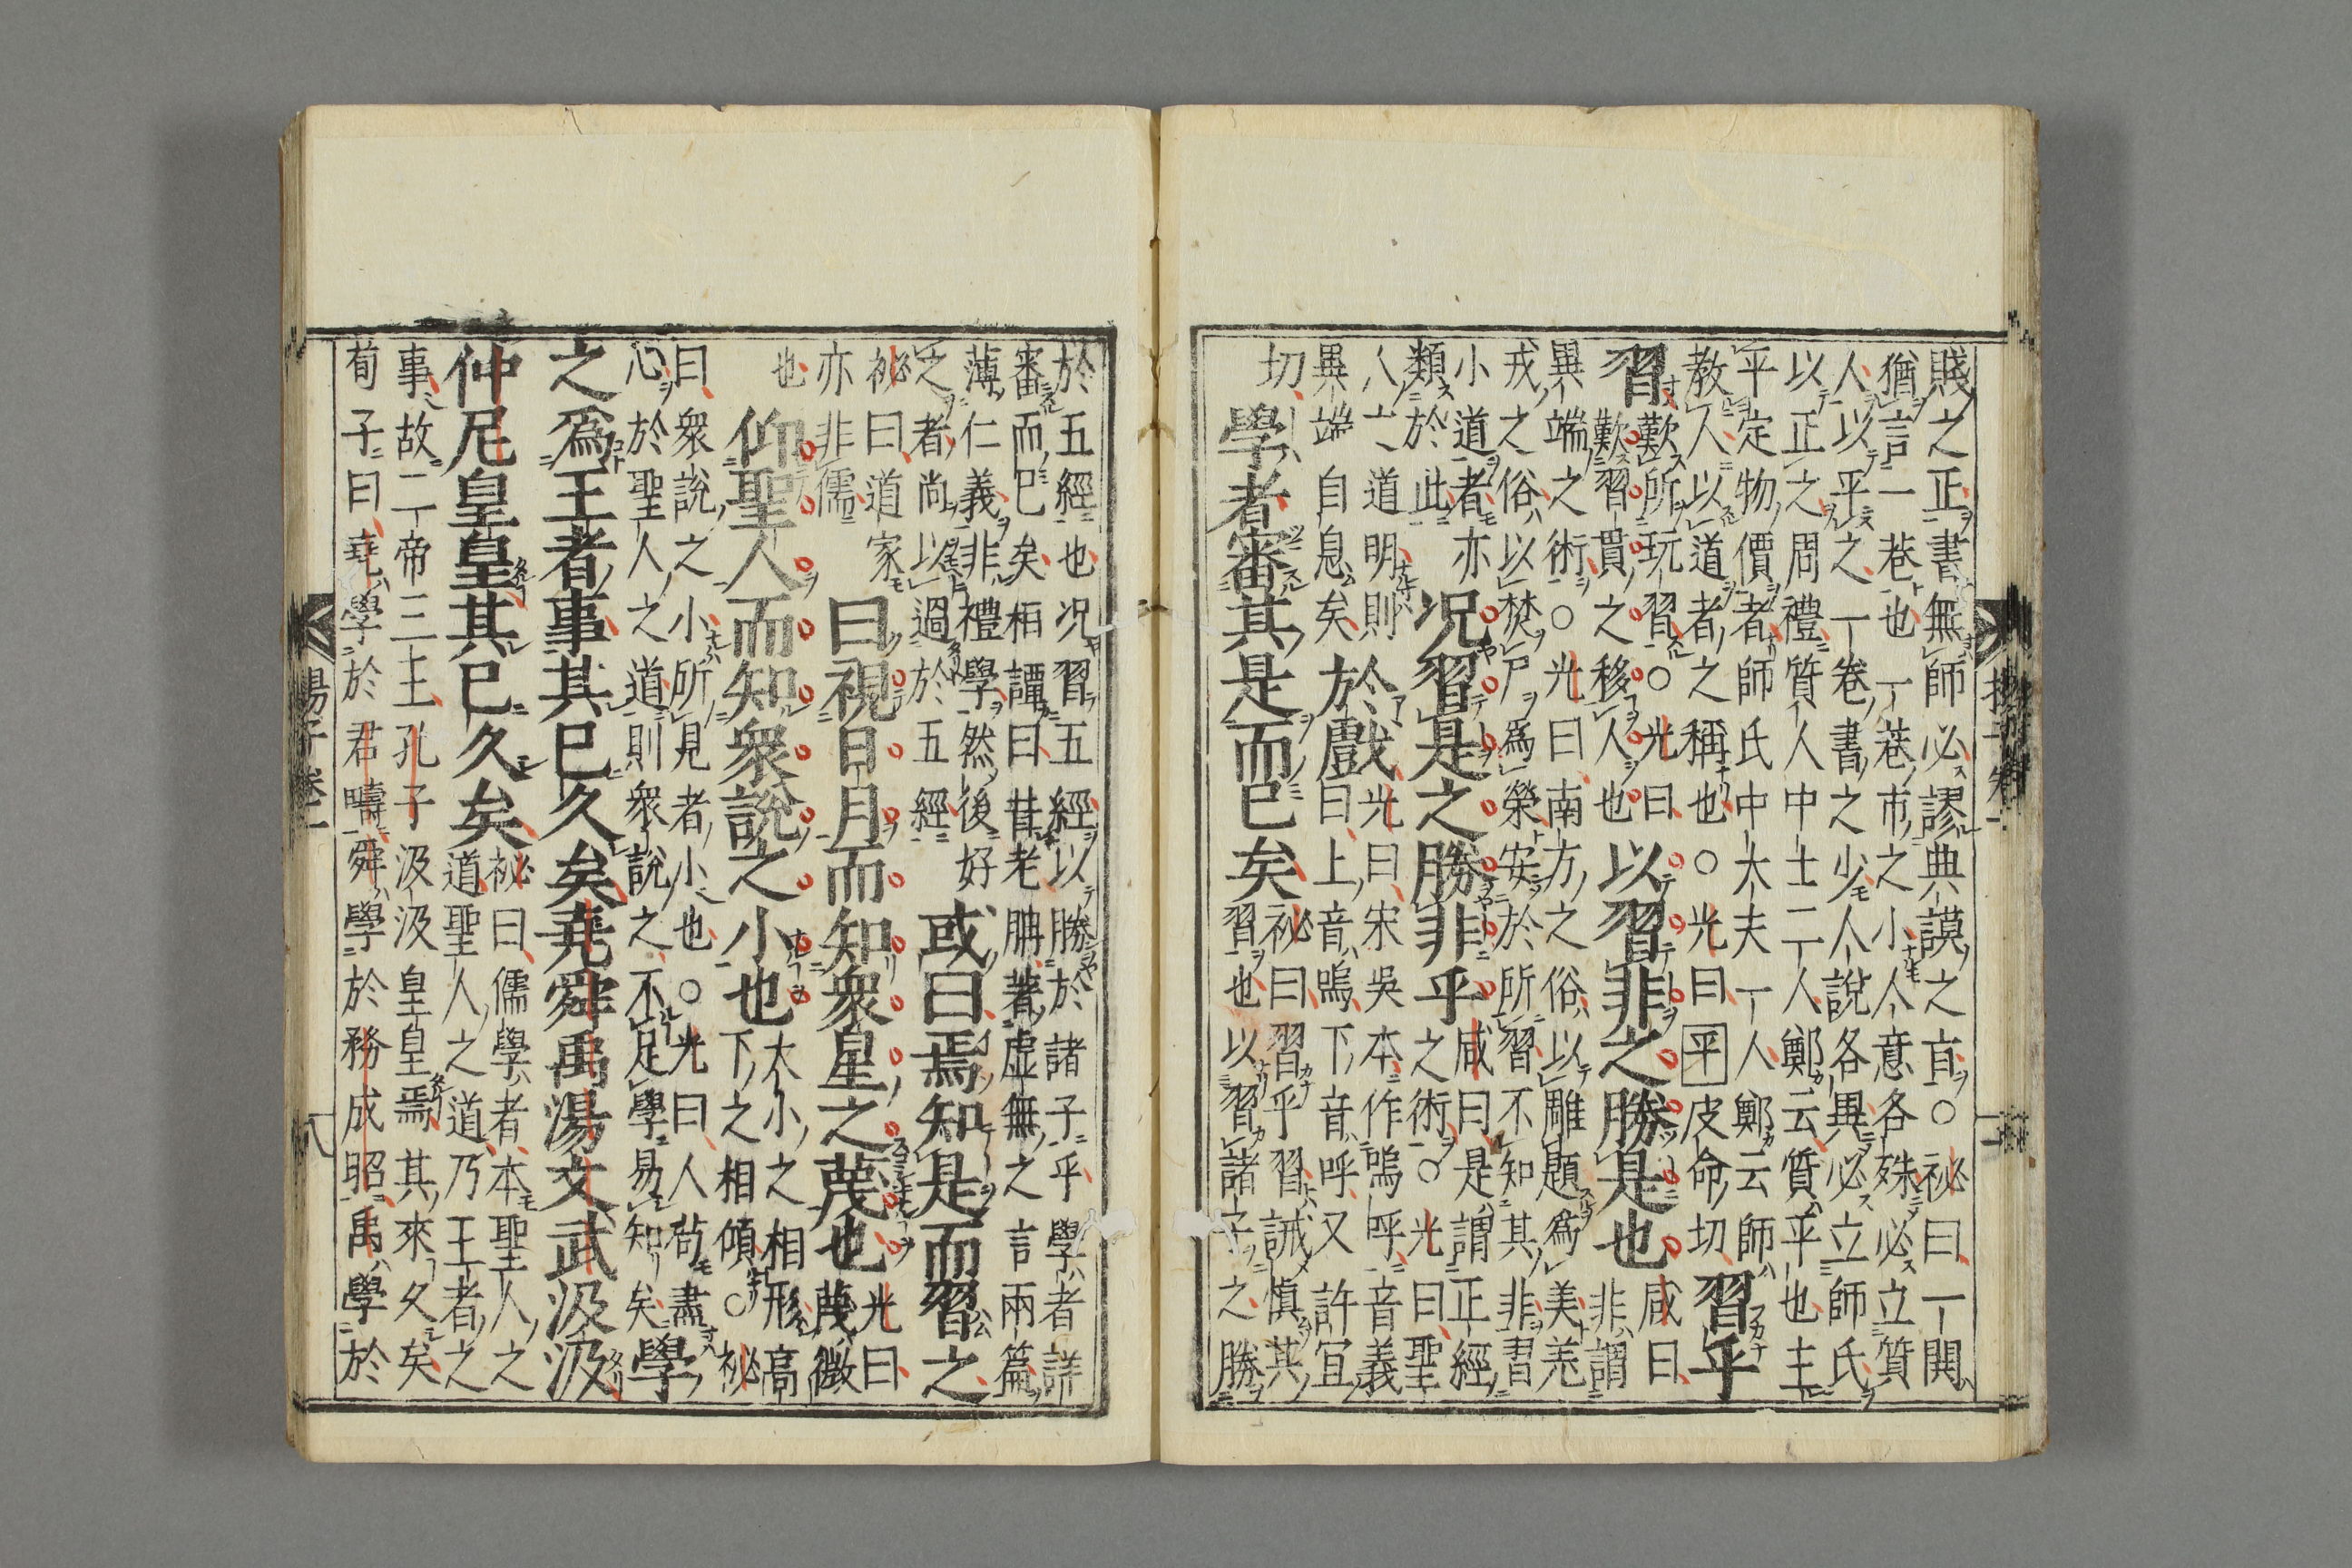 賤之正書無師必謬典謨之言○祕曰一鬨
猶言一巷也一巷市之小人意各殊必立質
人以平之一卷書之少人說各異必立師氏
以正之周禮質人中士二人鄭云質平也主
平定物價者師氏中大夫一人鄭云師
教人以道者之稱也○光曰平皮命切習乎
歎所玩習○光曰
習
歎習貫之移人也以習非之勝是也咸曰
非謂
異端之術○光曰南方之俗以雕題爲美羌
戎之俗以焚尸爲榮安於所習不知其非習
小道者亦
類於此況習是之勝非乎咸曰是謂正經
之術○光曰聖
人之道明則
異端自息矣於戲光曰宋吳本作嗚呼音義
曰上音嗚下音呼又許宜
切學者審其是而已矣祕曰習乎習誡慎其
習也以習諸子之勝
於五經也況習五經以勝於諸子乎學者詳
審而已矣桓譚曰昔老聃著虛無之言兩篇
薄仁義非禮學然後好
之者尚以過於五經或曰焉知是而習之
祕曰道家
亦非儒
也曰視日月而知衆星之蔑也光曰
蔑微
仰聖人而知衆說之小也大小之相形高
下之相傾○祕
曰衆說之小所見者小也○光曰人苟盡
心於聖人之道則衆說之不足學易知矣學
之爲王者事其已久矣堯舜禹湯文武汲汲
仲尼皇皇其已久矣祕曰儒學者本聖人之
道聖人之道乃王者之
事故二帝三王孔子汲汲皇皇焉其來久矣
荀子曰堯學於君疇舜學於務成昭禹學於
揚子卷一
八